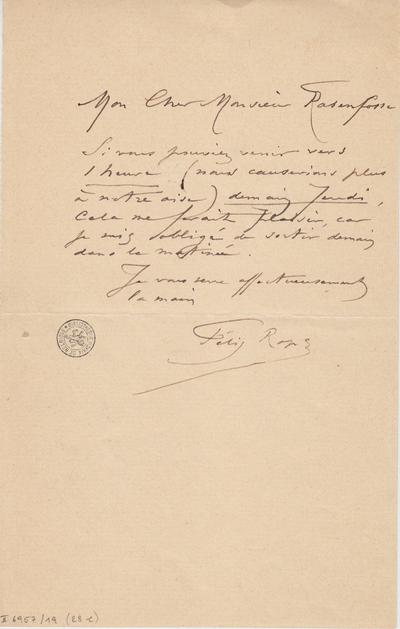 Mon Cher Monsieur Rasenfosse
Si vous pouviez venir vers
1 heure (nous causerions plus
à notre aise) demain Jeudi,
Cela me ferait plaisir, car
je suis obligé de sortir demain
dans la matinée.
Je vous serre affectueusement
la main
Félix Rops
II 6957/19 (28 c)